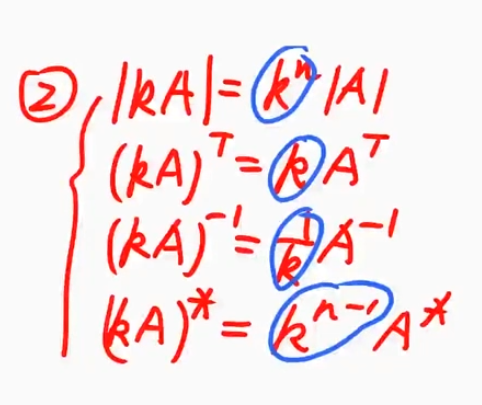 ② |kA| = kⁿ |A|
(kA)ᵀ = k Aᵀ
(kA)⁻¹ = 1/k A⁻¹
(kA)* = kⁿ⁻¹ A*